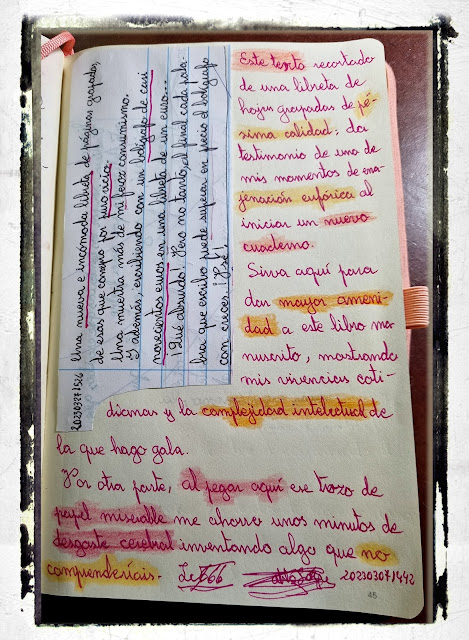 Una nueva e incómoda libreta de páginas grapadas,
de esas que compro por puro vicio.
Una muestra más de mi feroz consumismo.
Y además, escribiendo con un bolígrafo de casi
novecientos euros en una libreta de un euro...
¡Qué absurdo! Pero no tanto, al final cada pala-
bra que escribo puede superar en precio al bolígrafo
con creces.
Este texto recortado
de una libreta de
hojas grapadas de pé-
sima calidad; da
testimonio de uno de
mis momentos de ena-
jenación eufórica al
iniciar un nuevo
cuaderno.
Sirva aquí para
dar mayor ameni-
dad a este libro ma-
nuscrito, mostrando
mis vivencias coti-
dianas y la complejidad intelectual de
la que hago gala.
Por otra parte, al pegar aquí ese trozo de
papel miserable me ahorro unos minutos de
desgaste cerebral inventando algo que no
comprenderíais.
202303071442
45